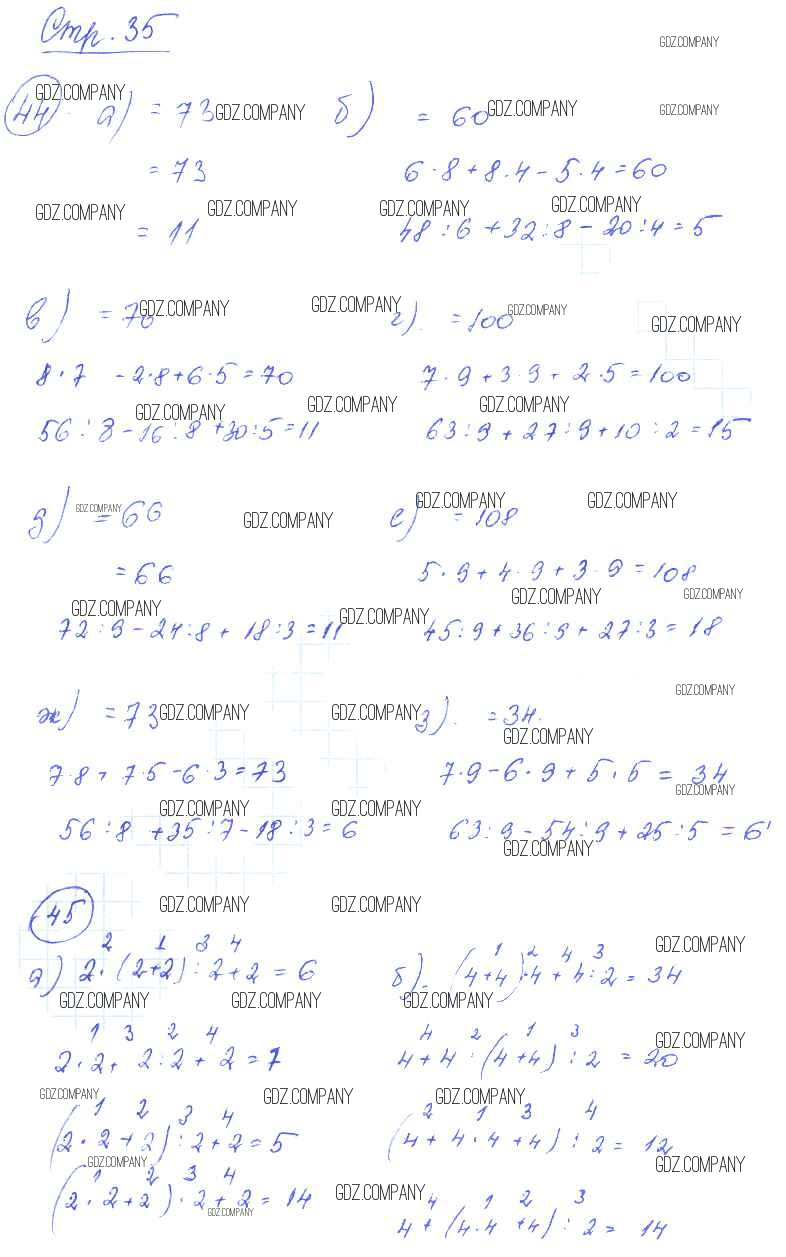 Стр. 35
GDZ.COMPANY
44. а) = 73 GDZ.COMPANY б) = 60 GDZ.COMPANY GDZ.COMPANY
GDZ.COMPANY
= 73 6·8+8·4-5·4=60
GDZ.COMPANY GDZ.COMPANY GDZ.COMPANY GDZ.COMPANY
= 11 48:6+32:8-20:4=5
в) = 70 GDZ.COMPANY GDZ.COMPANY г). =100 GDZ.COMPANY GDZ.COMPANY
8·7 -2·8+6·5=70 7·9+3·9+2·5=100
GDZ.COMPANY GDZ.COMPANY GDZ.COMPANY
56:8-16:8+30:5=11 63:9+27:9+10:2=15
д) GDZ.COMPANY =66 GDZ.COMPANY е) GDZ.COMPANY =108 GDZ.COMPANY
=66 5·9+4·9+3·9=108
GDZ.COMPANY GDZ.COMPANY GDZ.COMPANY GDZ.COMPANY
72:9-24:8+18:3=11 45:9+36:9+27:3=18
GDZ.COMPANY
ж) =73 GDZ.COMPANY GDZ.COMPANY з). =34.
GDZ.COMPANY
7·8+7·5-6·3=73 7·9-6·9+5·5=34
GDZ.COMPANY GDZ.COMPANY GDZ.COMPANY
56:8+35:7-18:3=6 63:9-54:9+25:5=6
GDZ.COMPANY
45 GDZ.COMPANY GDZ.COMPANY
2 1 3 4 1 2 4 3 GDZ.COMPANY
а) 2·(2+2):2+2=6 б). (4+4)·4+4:2=34
GDZ.COMPANY GDZ.COMPANY GDZ.COMPANY
1 3 2 4 4 2 1 3 GDZ.COMPANY
2·2+2:2+2=7 4+4·(4+4):2=20
GDZ.COMPANY GDZ.COMPANY GDZ.COMPANY
1 2 3 4 2 1 3 4
(2·2+2):2+2=5 (4+4·4+4):2=12
GDZ.COMPANY GDZ.COMPANY
1 2 3 4
(2·2+2)·2+2=14 GDZ.COMPANY
GDZ.COMPANY 4 1 2 3
4+(4·4+4):2=14